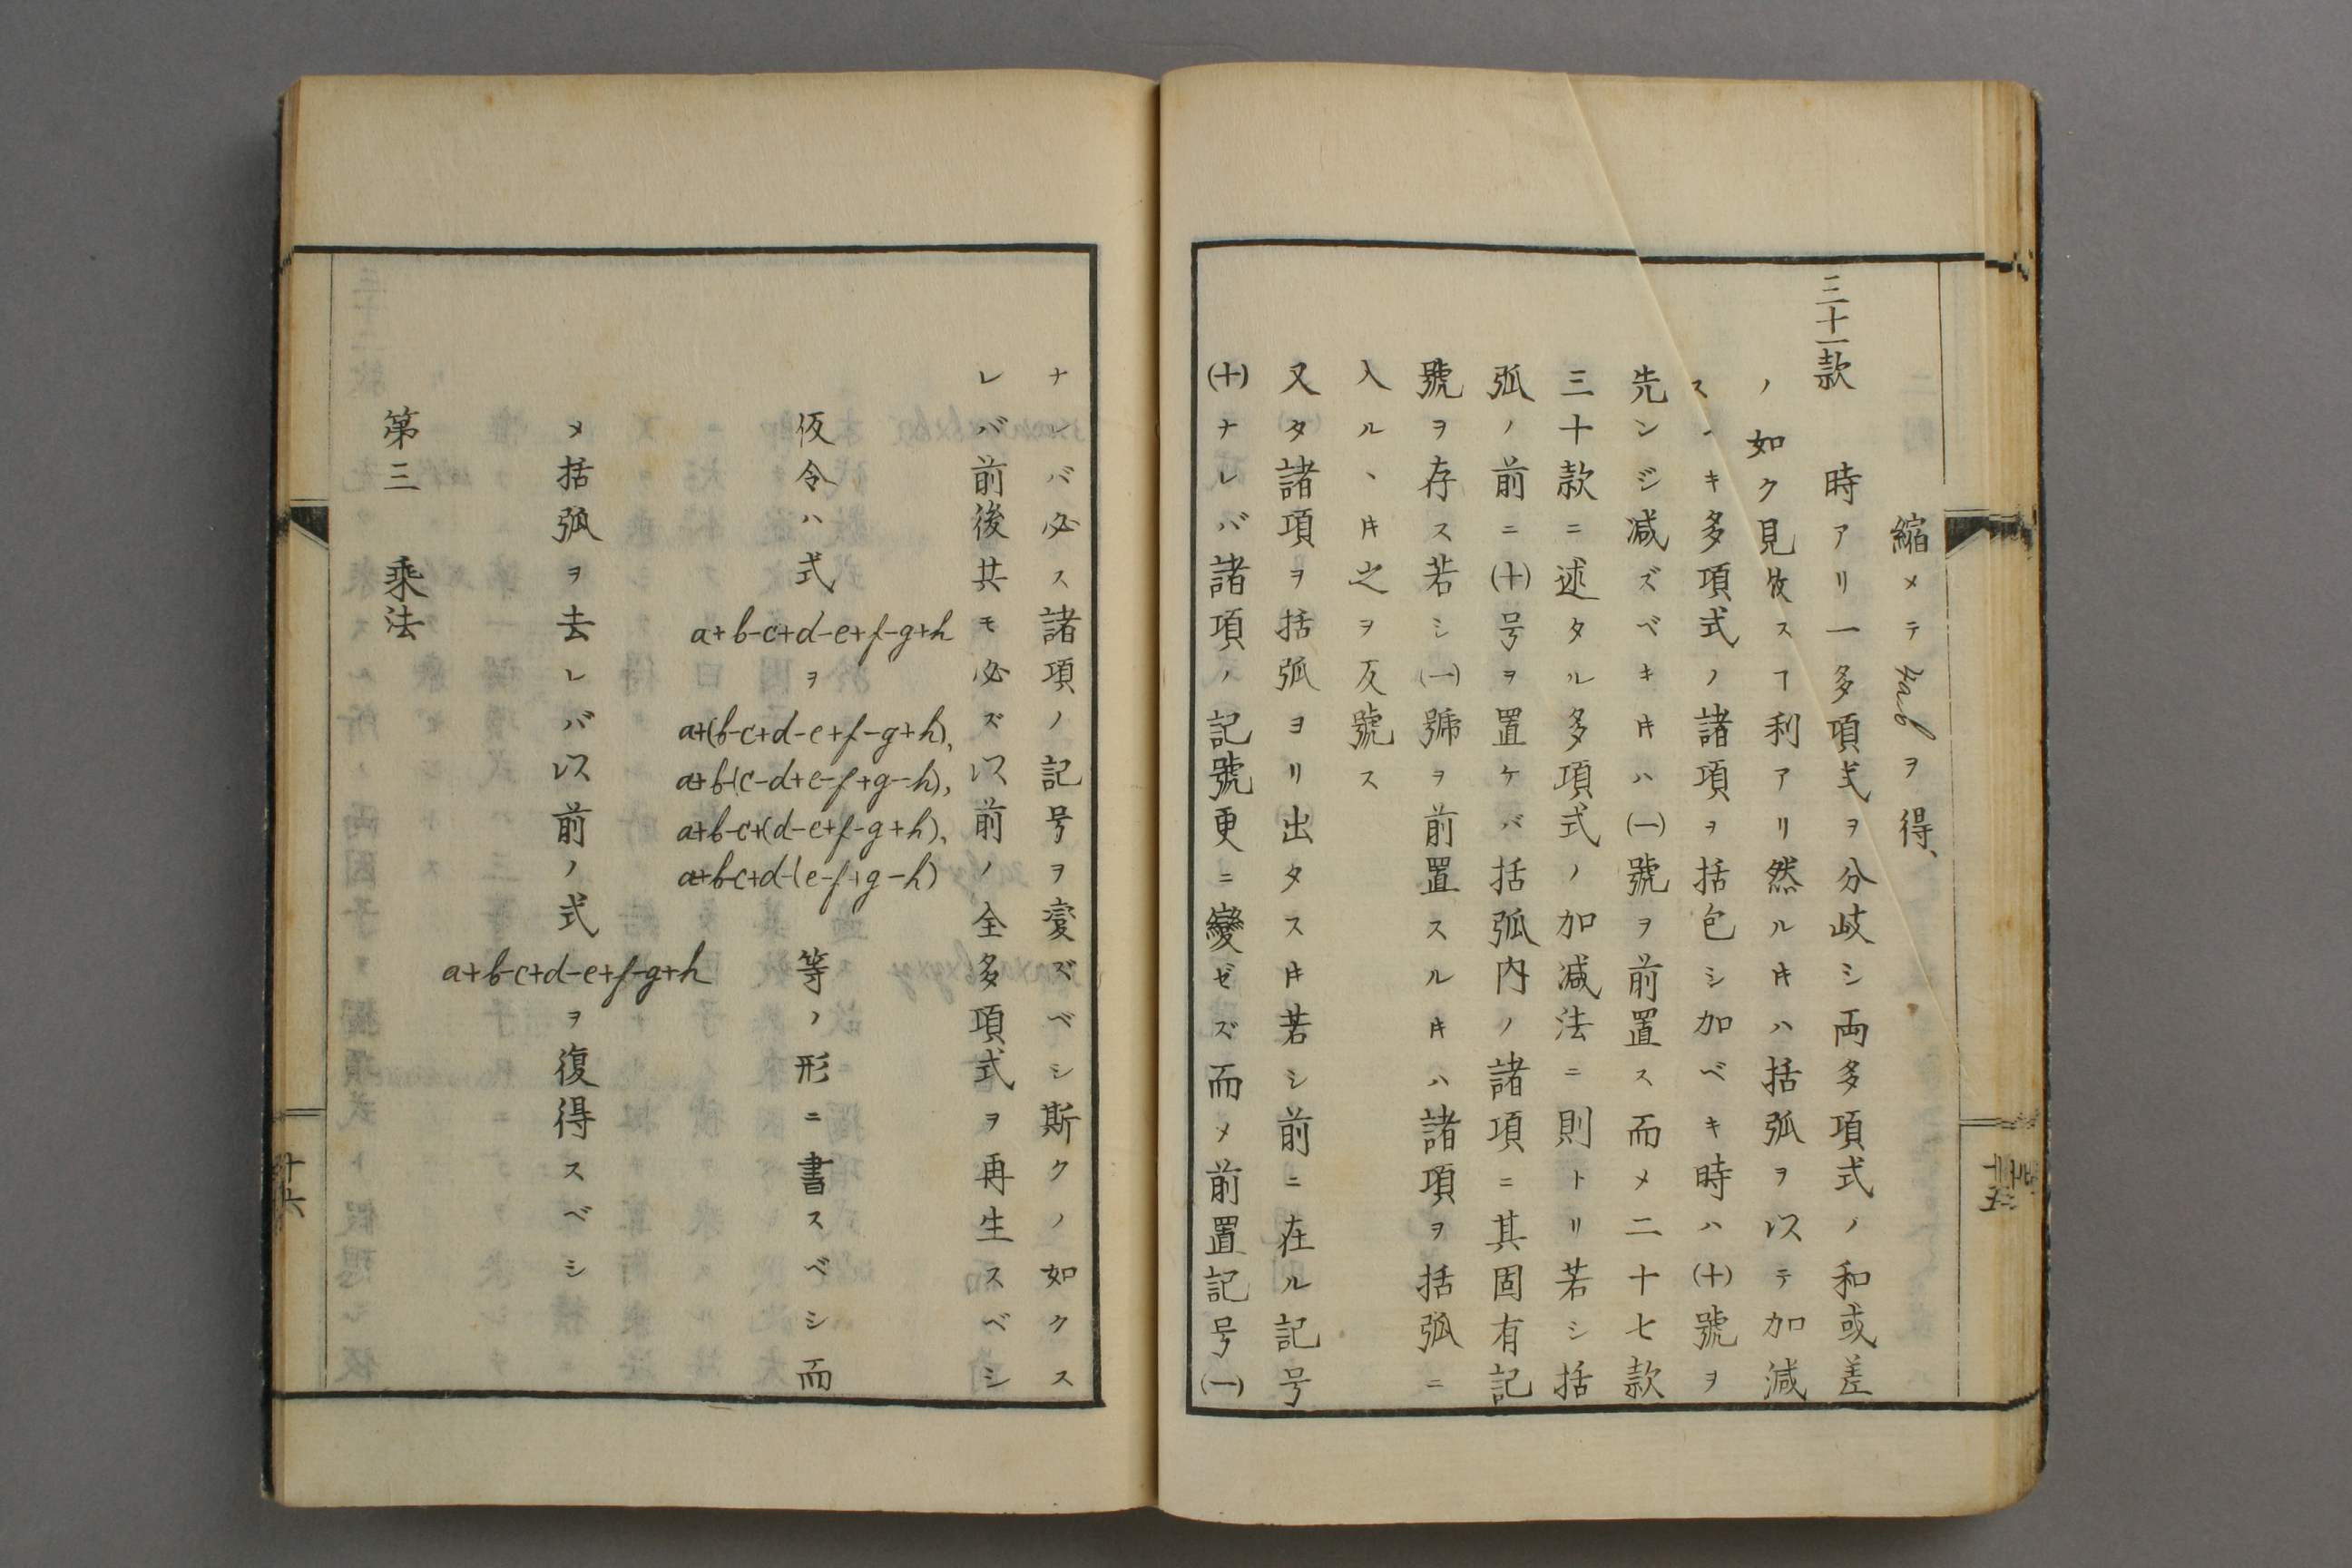 縮メテ 4ab ヲ得、
三十一款 時アリ一多項式ヲ分岐シ両多項式ノ和或差
ノ如ク見做スヿ利アリ然ルキハ括弧ヲ以テ加減
スヘキ多項式ノ諸項ヲ括包シ加ベキ時ハ(+)號ヲ
先ンジ減ズベキキハ(−)號ヲ前置ス而メ二十七款
三十款ニ述タル多項式ノ加減法ニ則トリ若シ括
弧ノ前ニ(+)号ヲ置ケバ括弧内ノ諸項ニ其固有記
號ヲ存ス若シ(−)號ヲ前置スルキハ諸項ヲ括弧ニ
入ルヽキ之ヲ反號ス
又タ諸項ヲ括弧ヨリ出タスキ若シ前ニ在ル記号
(+)ナレバ諸項ノ記號更ニ變ゼズ而メ前置記号(−)
ナレバ必ス諸項ノ記号ヲ変ズベシ斯クノ如クス
レバ前後共モ必ズ以前ノ全多項式ヲ再生スベシ
仮令ハ式
a+b-c+d-e+f-g+h
ヲ
a+(b-c+d-e+f-g+h)、
a+b-(c-d+e-f+g-h),
a+b-c+(d-e+f-g+h)、
a+b-c+d-(e-f+g-h)
等ノ形ニ書スベシ而
メ括弧ヲ去レバ以前ノ式
a+b-c+d-e+f-g+h
ヲ復得スベシ
第三 乘法
十六